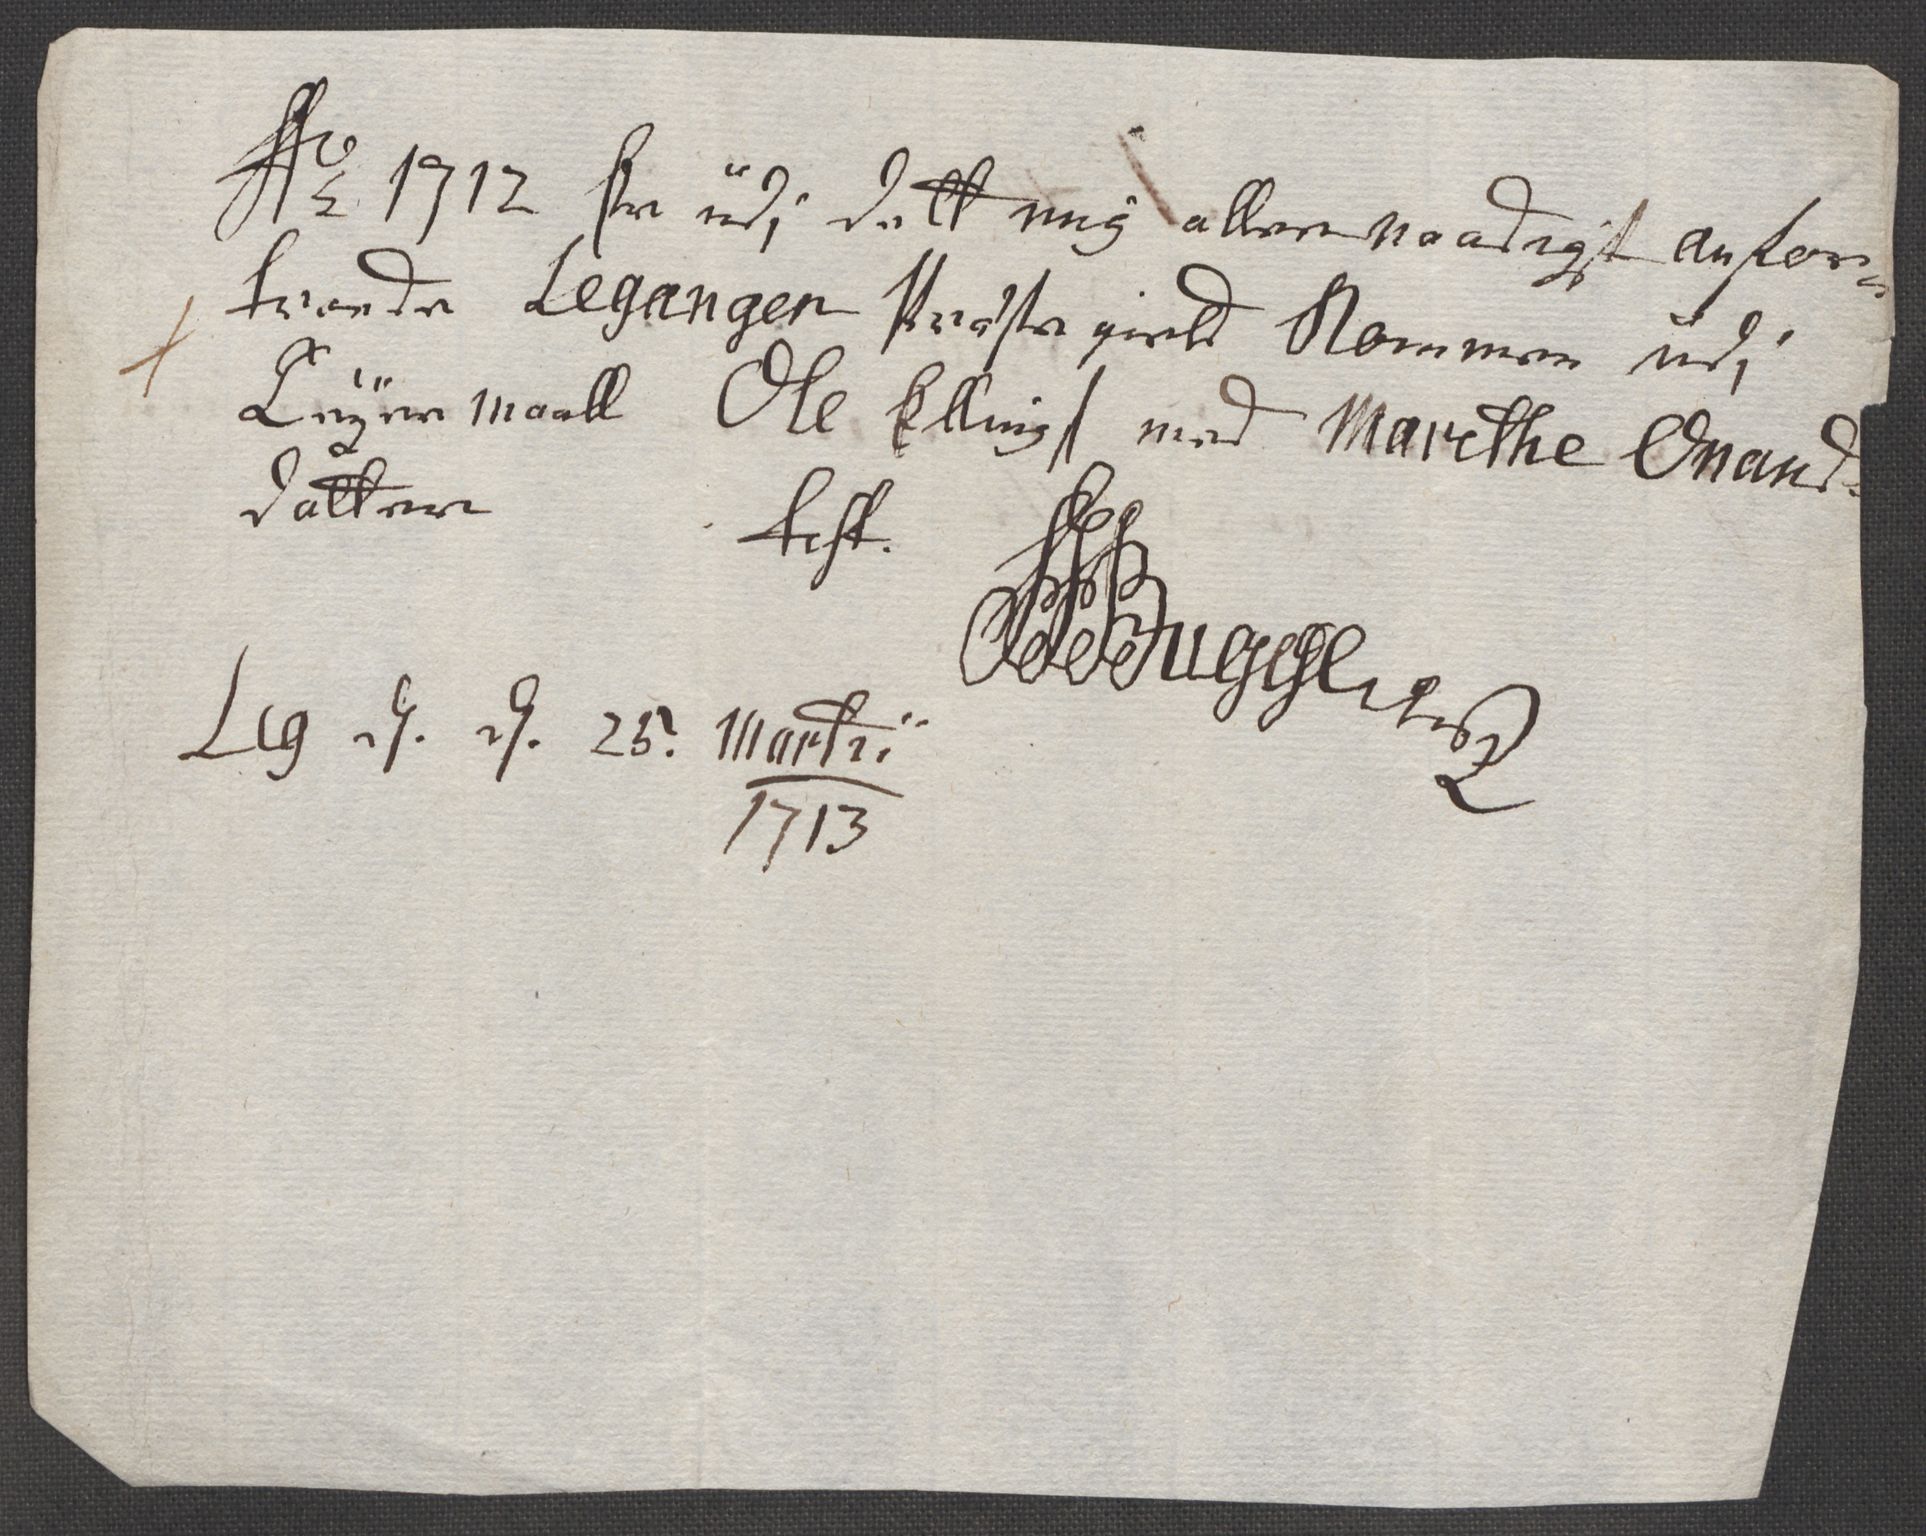 Ao 1712 Er udj dett mig allernaadigst anfor-
troede Leganger Præste gield Kommen udj
Leyermaall Ole Ellings med Marethe Onand-
datter test.
Leg d. 25 Martii
1713